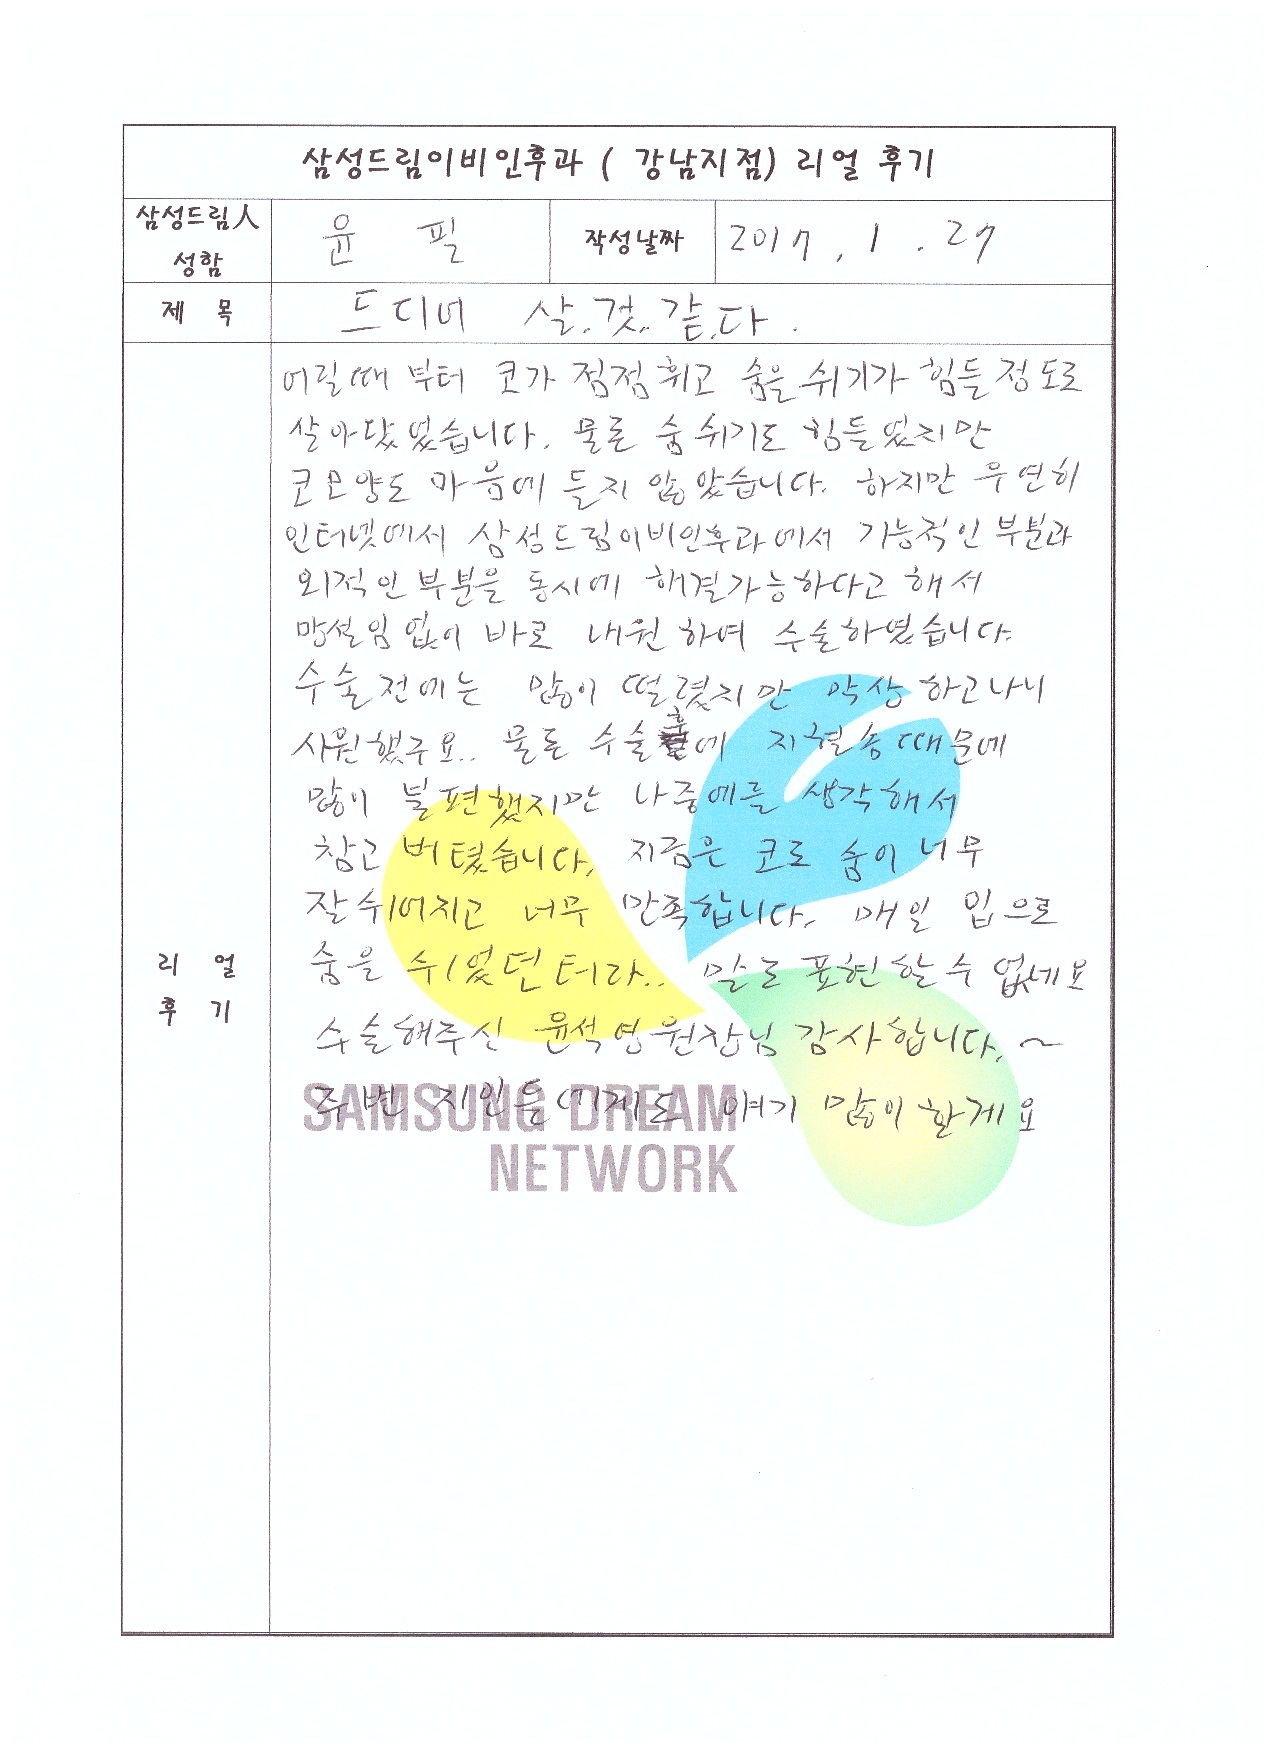 삼성드림이비인후과 ( 강남지점) 리얼 후기
삼성드림人 성함
윤 필
작성날짜
2017 . 1 . 27
제 목
드디어 살.것.같.다.
리 얼 후 기
어릴때 부터 코가 점점휘고 숨을쉬기가 힘들정도로
살아왔었습니다. 물론 숨쉬기도 힘들었지만
코모양도 마음에 들지 않았습니다. 하지만 우연히
인터넷에서 삼성드림이비인후과에서 기능적인 부분과
외적인 부분을 동시에 해결가능하다고 해서
망설임 없이 바로 내원하여 수술하였습니다.
수술전에는 많이 떨렸지만 막상 하고나니
시원했구요.. 물론 수술후에 지혈솜때문에
많이 불편했지만 나중에를 생각해서
참고 버텼습니다. 지금은 코로 숨이 너무
잘쉬어지고 너무 만족합니다. 매일 입으로
숨을 쉬었던터라.. 말로 표현할수 없네요
수술해주신 윤석영원장님 감사합니다.~
주변 지인들에게도 얘기 많이 할게요
SAMSUNG DREAM
NETWORK